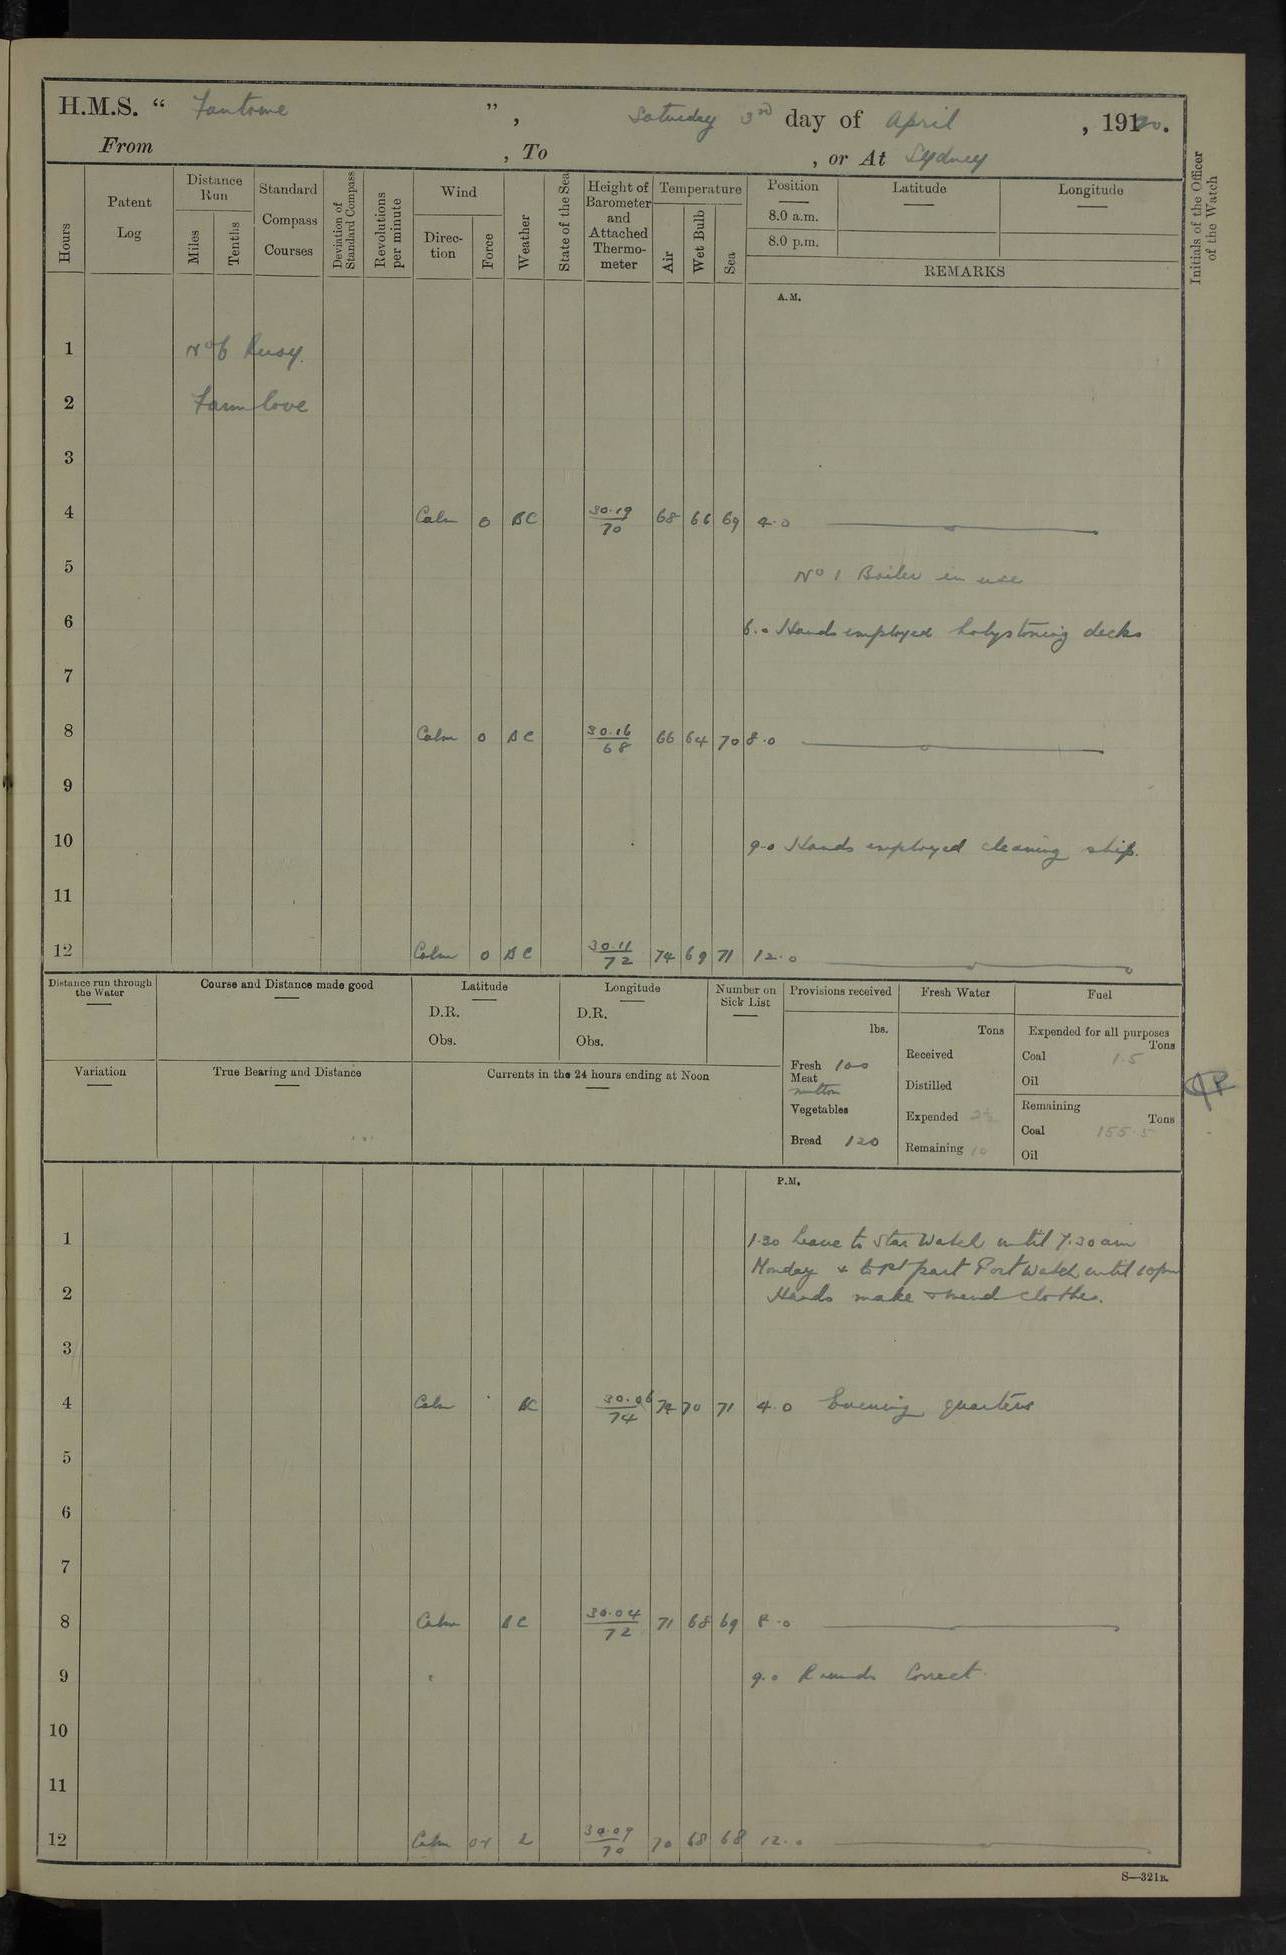 H.M.S. “ Fantome ” , Saturday 3rd day of April , 1920.
From , To , or At Sydney
Hours
Patent Log
Distance Run
Miles
Tenths
Standard Compass Courses
Deviation of Standard Compass
Revolutions per minute
Wind
Direction
Force
Weather
State of the Sea
Height of Barometer and Attached Thermometer
Temperature
Air
Wet Bulb
Sea
Position
8.0 a.m.
8.0 p.m.
Latitude
Longitude
REMARKS
Initials of the Officer of the Watch
A.M.
1 No 6 Buoy.
2 Farm Cove
3
4 Calm 0 BC 30.19/70 68 66 69 4.0
5 No 1 Boiler in use
6 6.0 Hands employed holystoning decks
7
8 Calm 0 BC 30.16/68 66 64 70 8.0
9
10 9.0 Hands employed cleaning ship.
11
12 Calm 0 BC 30.11/72 74 69 71 12.0
Distance run through the Water
Course and Distance made good
Latitude
D.R.
Obs.
Longitude
D.R.
Obs.
Number on Sick List
Provisions received
lbs.
Fresh Meat 100
mutton
Vegetables
Bread 120
Fresh Water
Tons
Received
Distilled
Expended 2½
Remaining 10
Fuel
Expended for all purposes
Tons
Coal 1.5
Oil
Remaining
Tons
Coal 155.5
Oil
Variation
True Bearing and Distance
Currents in the 24 hours ending at Noon
P.M.
1 1.30 Leave to Star Watch until 7.30 am
Monday & to 1st part Port Watch until 10pm
2 Hands make & mend clothes.
3
4 Calm BC 30.06/74 74 70 71 4.0 Evening quarters
5
6
7
8 Calm BC 30.04/72 71 68 69 8.0
9 9.0 Rounds Correct.
10
11
12 Calm 30.09/70 70 68 68 12.0
S—321B.